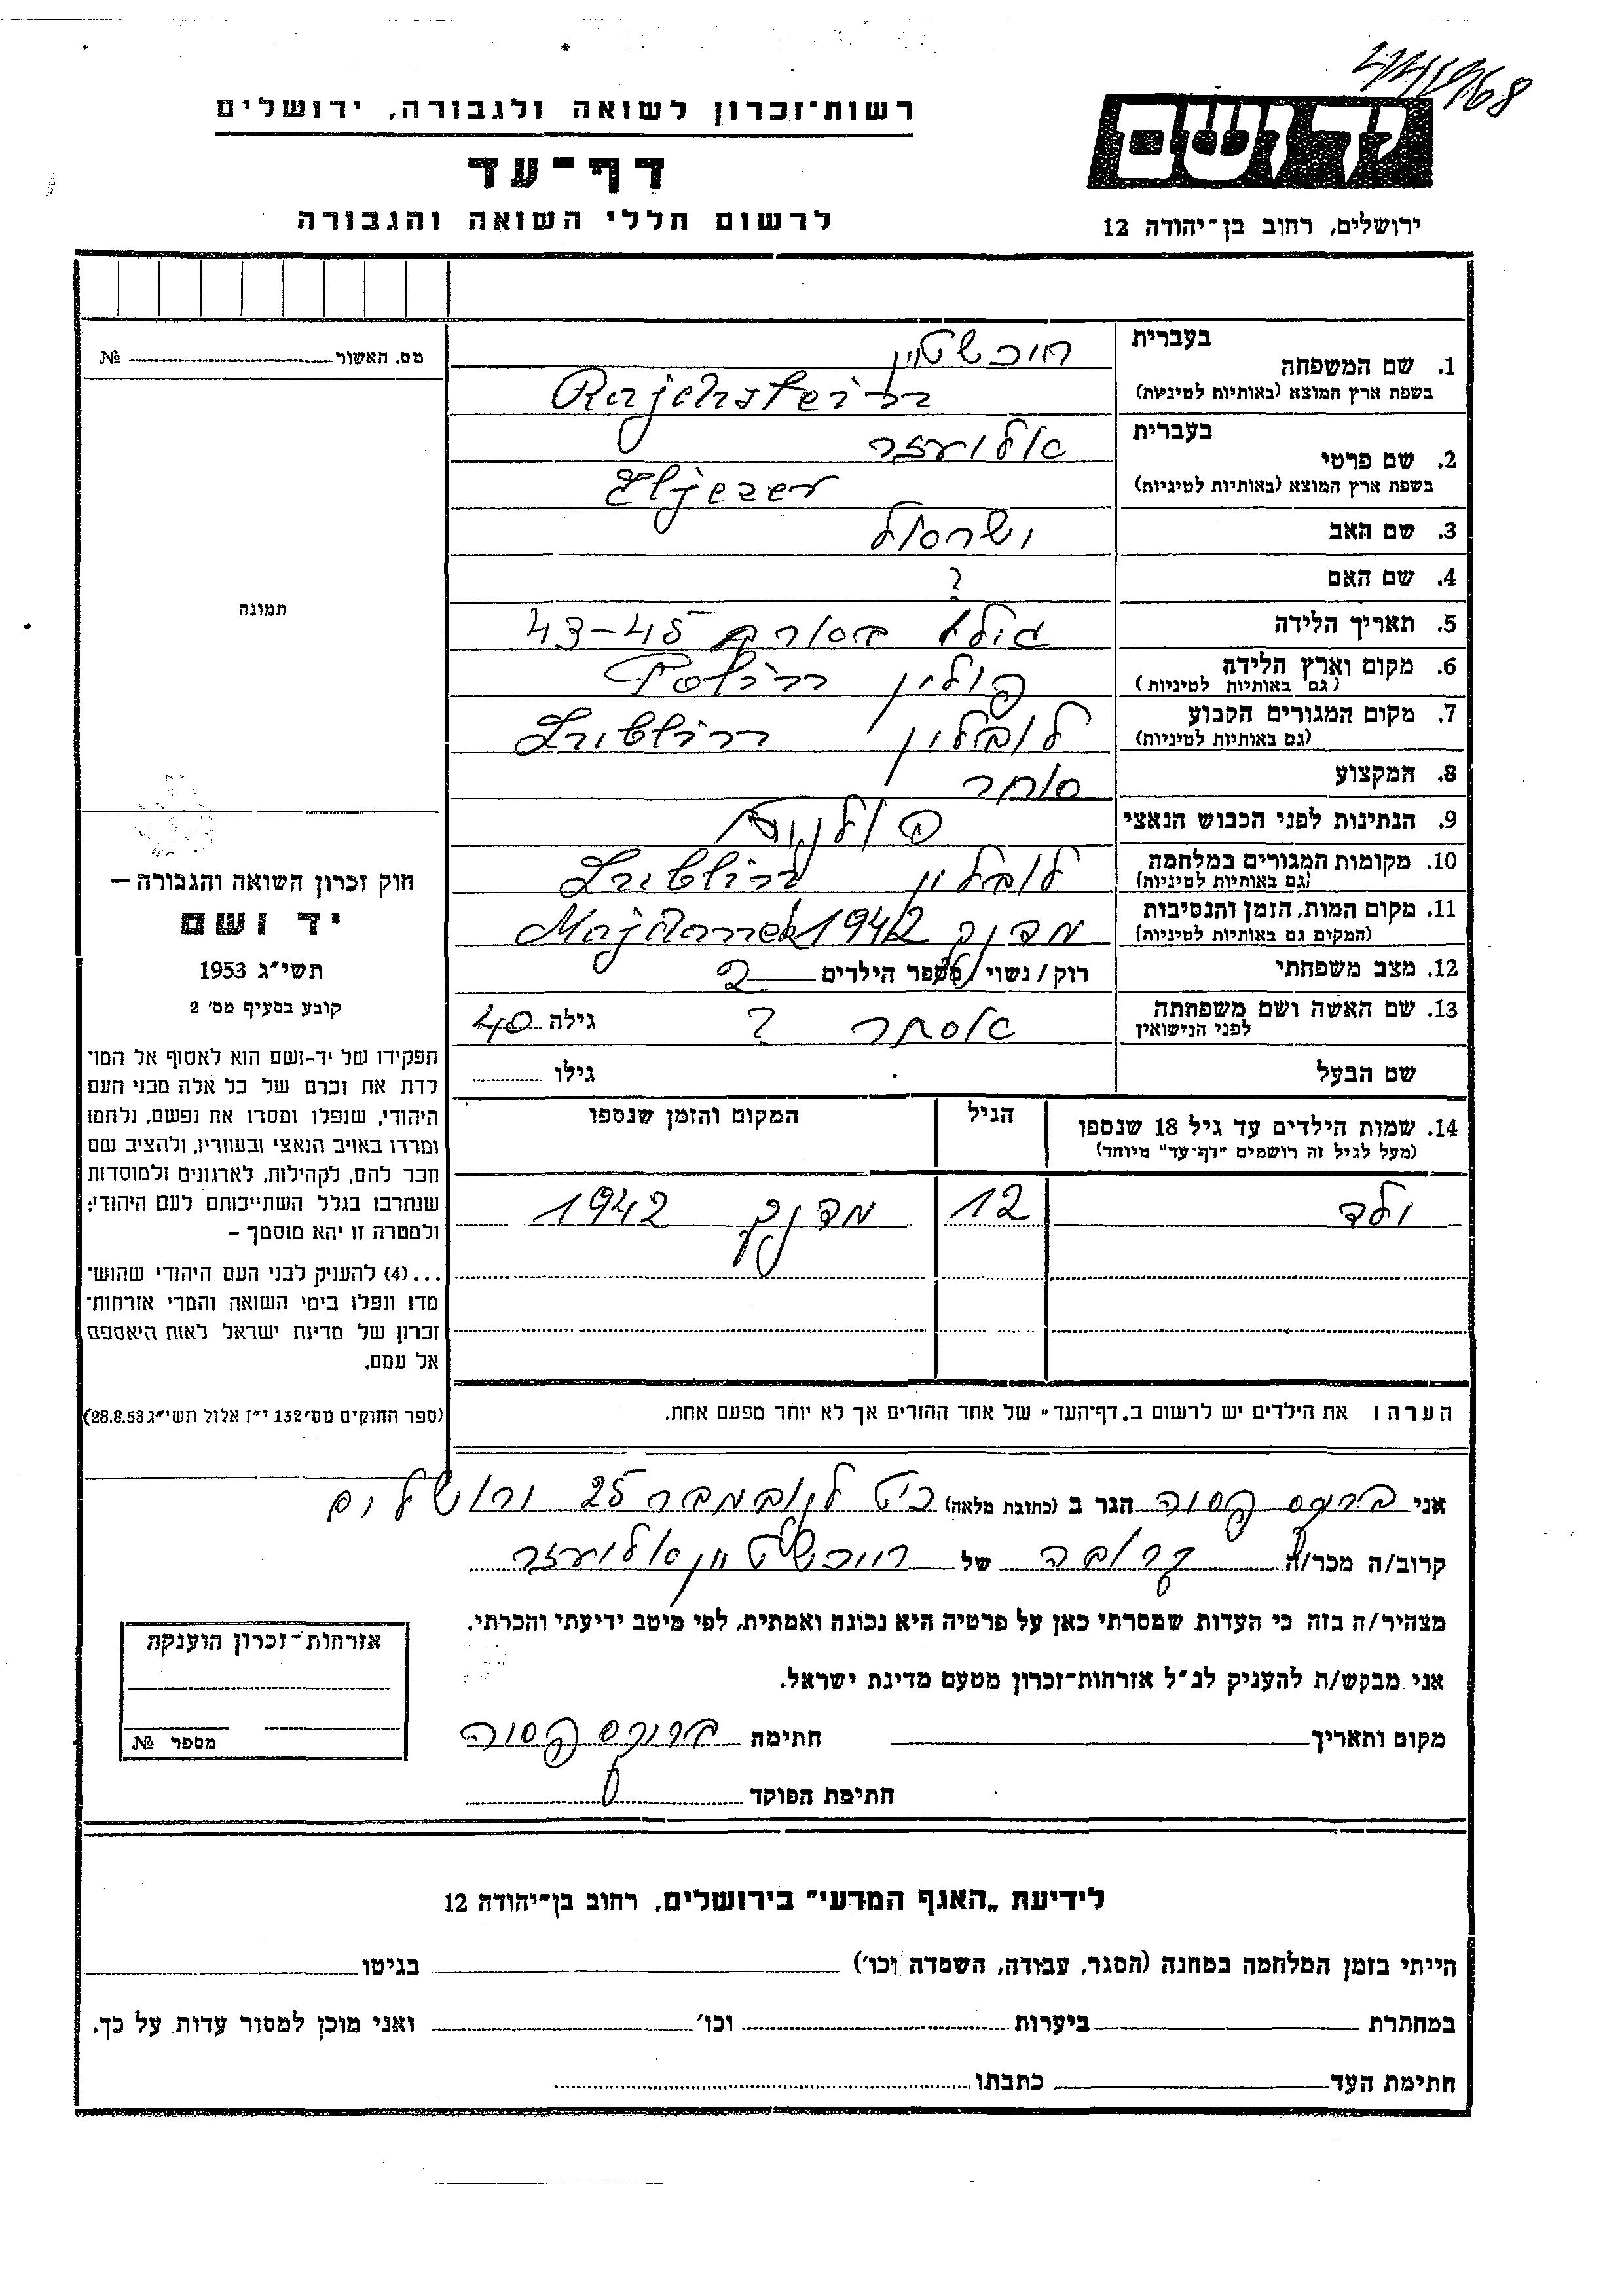 רשות־זכרון לשואה ולגבורה, ירושלים
דף־עד
לרשום חללי השואה והגבורה
ידושם
ירושלים, רחוב בן־יהודה 12
מס. האשור № 
תמונה
חוק זכרון השואה והגבורה —
יד ושם
תשי״ג 1953
קובע בסעיף מס׳ 2
תפקידו של יד-ושם הוא לאסוף אל המו־
לדת את זכרם של כל אלה מבני העם
היהודי, שנפלו ומסרו את נפשם, נלחמו
ומרדו באויב הנאצי ובעוזריו, ולהציב שם
וזכר להם, לקהילות, לארגונים ולמוסדות
שנחרבו בגלל השתייכותם לעם היהודי;
ולמטרה זו יהא מוסמך –
...(4) להעניק לבני העם היהודי שהוש־
מדו ונפלו בימי השואה והמרי אזרחות־
זכרון של מדינת ישראל לאות היאספם
אל עמם.
(ספר החוקים מס׳ 132 י״ז אלול תשי״ג 28.8.53)
בעברית
1. שם המשפחה רייכשטיין
בשפת ארץ המוצא (באותיות לטיניות) Rajchsztein
בעברית
2. שם פרטי אליעזר
בשפת ארץ המוצא (באותיות לטיניות) Eljezer
3. שם האב ישראל
4. שם האם ?
5. תאריך הלידה גילו בערך 43-45
6. מקום וארץ הלידה פולין Polin
(גם באותיות לטיניות)
7. מקום המגורים הקבוע לובלין Lublin
(גם באותיות לטיניות)
8. המקצוע סוחר
9. הנתינות לפני הכבוש הנאצי פולנית
10. מקומות המגורים במלחמה לובלין Lublin
(גם באותיות לטיניות)
11. מקום המות, הזמן והנסיבות מדנק 1942 Majdanek
(המקום גם באותיות לטיניות)
12. מצב משפחתי רוק / נשוי / מספר הילדים 2
13. שם האשה ושם משפחתה אסתר ? גילה 40
לפני הנישואין
שם הבעל גילו
14. שמות הילדים עד גיל 18 שנספו הגיל המקום והזמן שנספו
(מעל לגיל זה רושמים "דף־עד" מיוחד)
ילד 12 מדנק 1942
הערה ו את הילדים יש לרשום ב„דף־העד״ של אחד ההורים אך לא יותר מפעם אחת.
אני הגר ב (כתובת מלאה) כ״ט לנובמבר 25 ירושלים
קרוב/ה מכר/ה קרובה של רייכשטיין אליעזר
מצהיר/ה בזה כי העדות שמסרתי כאן על פרטיה היא נכונה ואמתית, לפי מיטב ידיעתי והכרתי.
אני מבקש/ת להעניק לנ״ל אזרחות־זכרון מטעם מדינת ישראל.
מקום ותאריך חתימה
חתימת הפוקד
אזרחות־זכרון הוענקה
מספר №
לידיעת „האגף המדעי״ בירושלים, רחוב בן־יהודה 12
הייתי בזמן המלחמה במחנה (הסגר, עבודה, השמדה וכו׳) בגיטו
במחתרת ביערות וכו׳ ואני מוכן למסור עדות על כך.
חתימת העד כתבתו